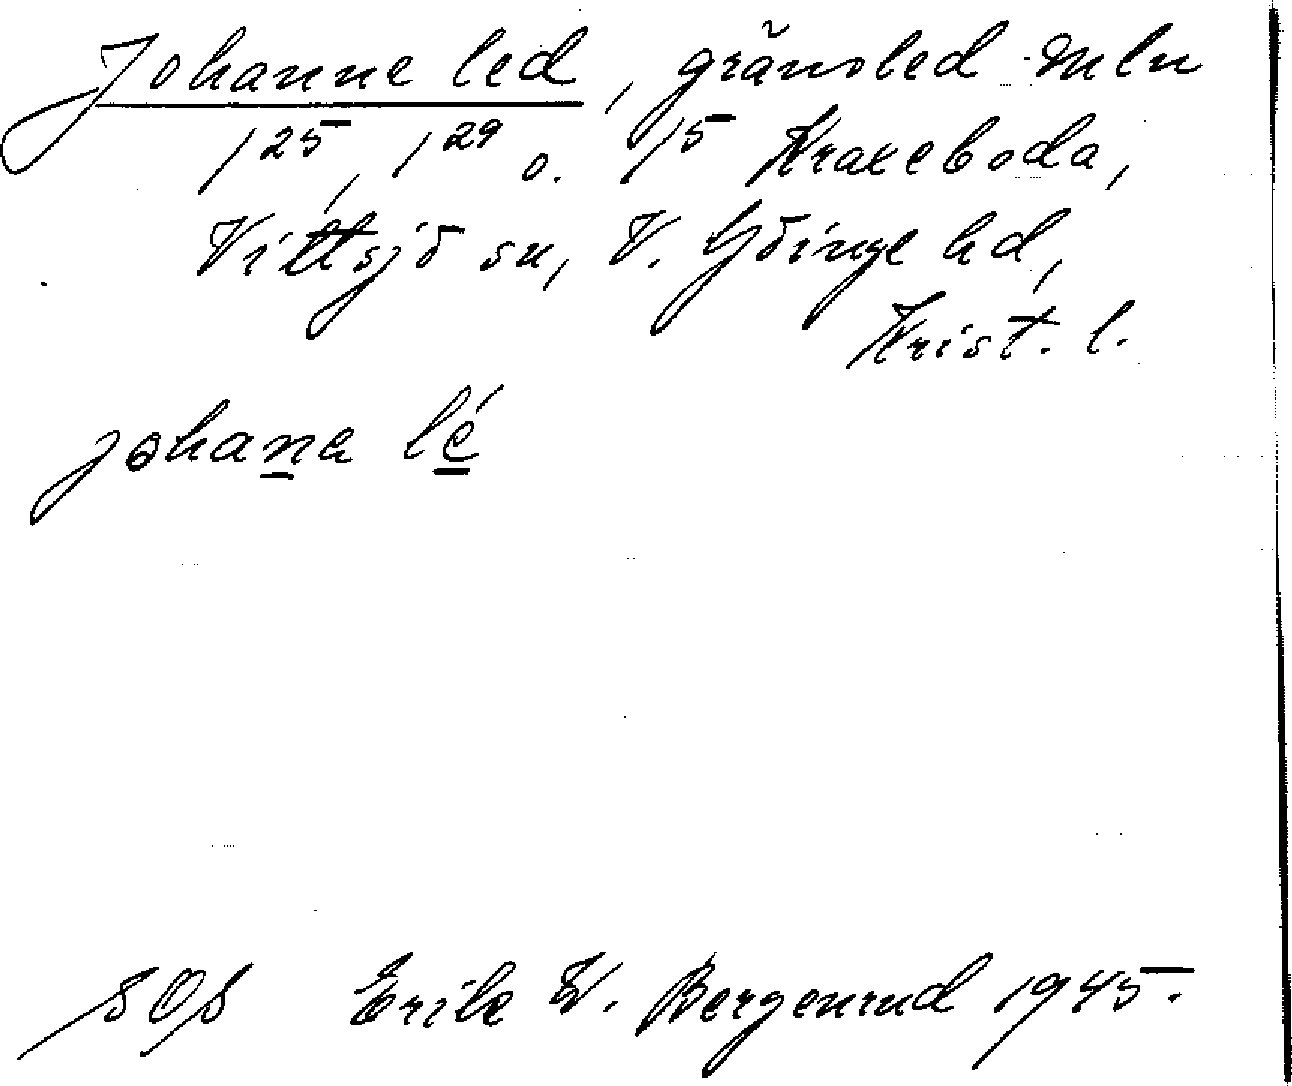 Johanne led, gränsled mln
1²⁵, 1²⁹ o. 1⁵ Kraxeboda,
Vittsjö sn, V. Göinge hd,
Krist. l.
johana lé
SOS Erik W. Bergenrud 1945.